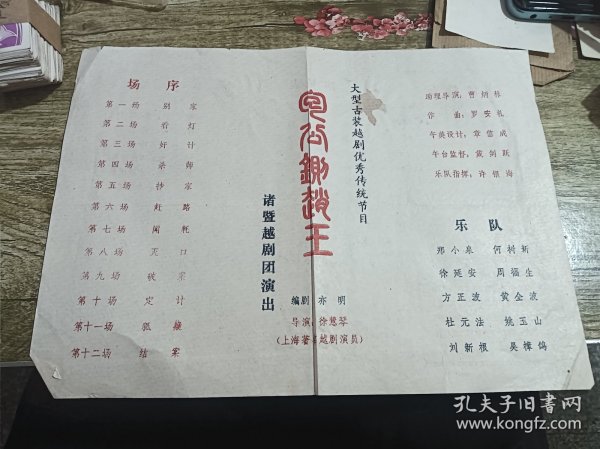 场序
第一场 别家
第二场 看灯
第三场 奸计
第四场 杀师
第五场 抄家
第六场 赶路
第七场 闻耗
第八场 灭口
第九场 破案
第十场 定计
第十一场 抓
第十二场 结案
大型古装越剧优秀传统节目
包公铡赵王
诸暨越剧团演出
编剧 亦明
导演:徐慧琴
(上海著名越剧演员)
助理导演:曹炳林
作曲:罗安
午美设计:章信成
午台监督:戴剑跃
乐队指挥:许银海
乐队
郑小泉 何树新
徐延安 周福生
方正波 黄金波
杜元法 姚玉山
刘新根 吴樟鸽
孔夫子旧书网
www.kongfz.com